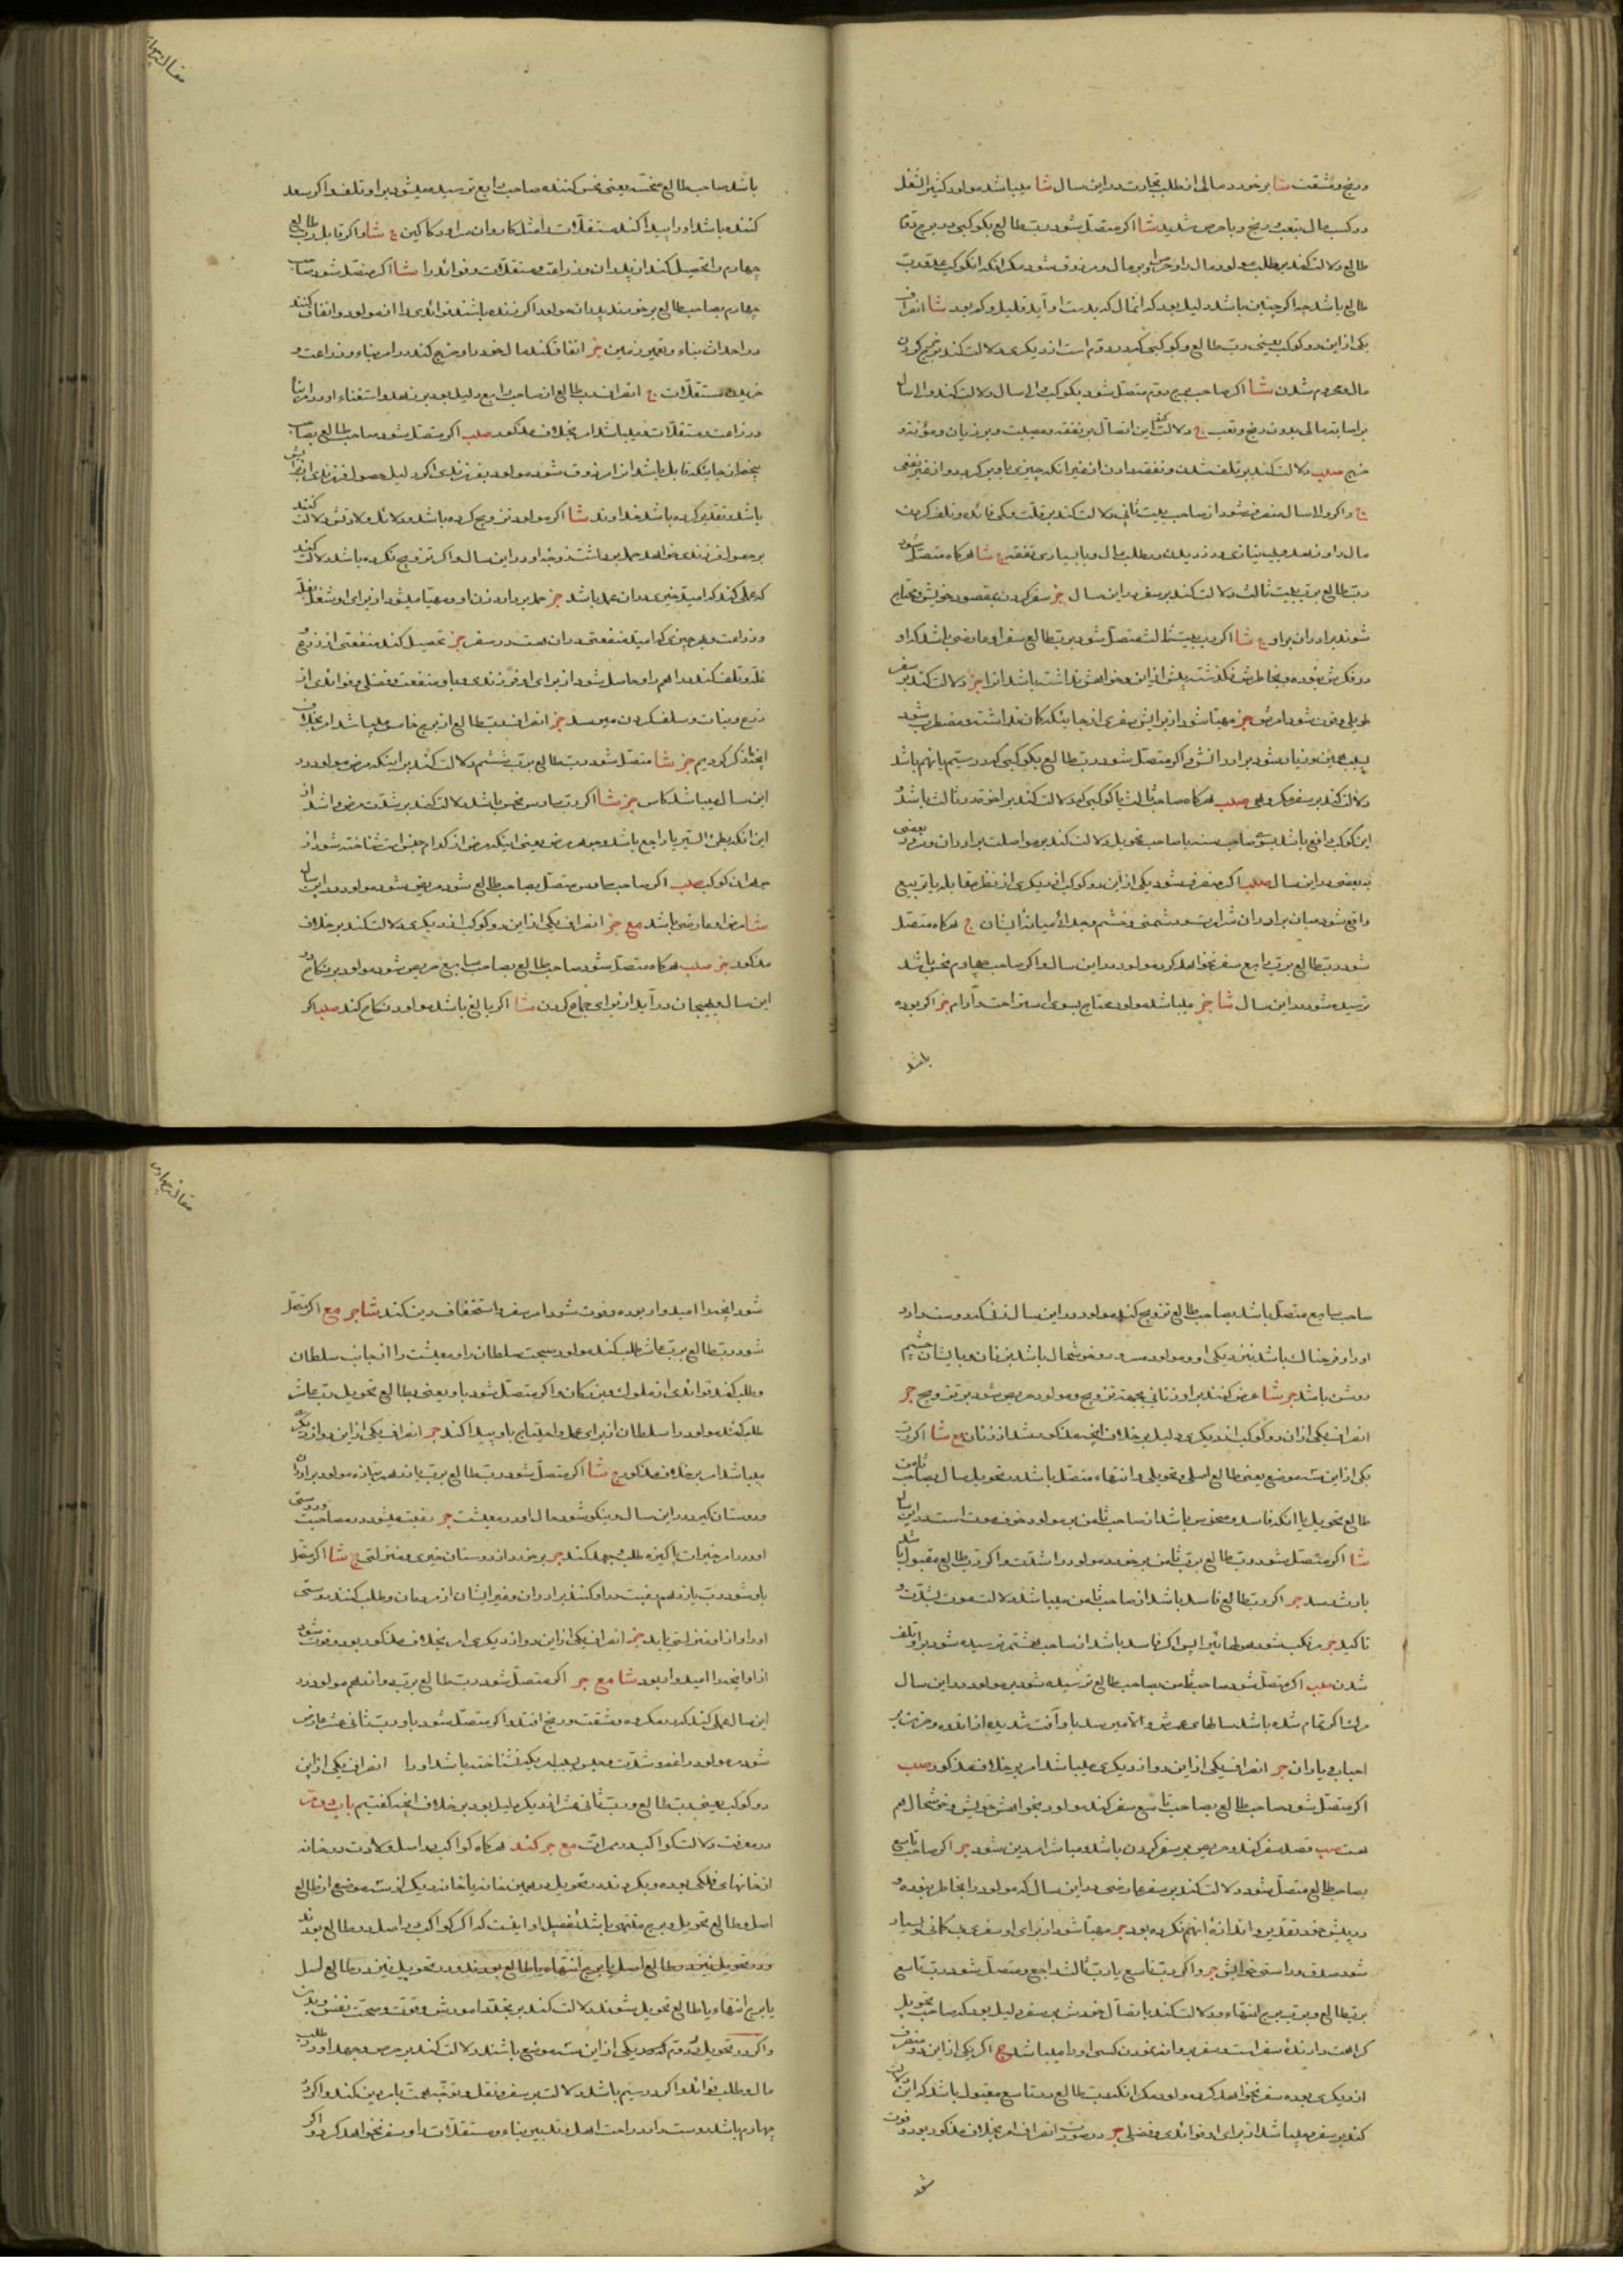 ورنج ومشقت شا برخورد مالی از طلب تجارت در این سال شا میباشد مولود کثیر الشغل
در کسب مال بتعب ورنج وباحرص شدید شا اگر متصل شود رب طالع بکوکبی در برج دوم
طالع دلالت کند بر طلب مولود مال را و بر مال و مرزوق شود مگر آنکه آن کوکب عدو رب
طالع باشد چه اگر چنین باشد دلیل بود که آنمال که بدست او آید قلیل وکم بود شا انصراف
یکی از این دو کوکب یعنی رب طالع وکوکبی که در دوم است از دیگری دلالت کند بر خرج کردن
مال ومحروم شدن شا اگر صاحب برج دوم متصل شود بکوکب والی سال دلالت کند والی سال
بر اصابه مالی بدون رنج وتعب ج دلالت کند این اتصال بر نفقه ومصیبت و بر زیان ومؤنه و
خرج صلب دلالت کند بر تلف شدن ونفقه دادن
واگر والی سال منصرف شود از صاحب بیت ثانی دلالت کند بر قلت وکمی فائده وتلف کردن
مال را و در طلب مال وبا بسیاری نفقه ج شا هرگاه متصل شود
رب طالع برب بیت ثالث دلالت کند بر سفر در این سال جز سفر کردن بمقصود خویش ومحتاج
شوند برادران براو ج شا اگر رب بیت ثالث متصل شود برب طالع سفر او عارضی باشد که او
در فکرش نبوده وبخاطرش نگذشته پیش از این وخواهش نداشته باشد آنرا جز دلالت کند بر سفر
طویلی جز مهیا شود از برایش سفری از جاییکه گمان نداشته ومضطرب شود
اگر متصل شود رب طالع بکوکبی که در سیم یا نهم باشد
دلالت کند بر سفر مکروهی صلب هرگاه صاحب ثالث یا کوکبی که دلالت کند بر اخوه در ثالث باشد و
این کوکب واقع باشد با صاحب تحویل دلالت کند بر مواصلت برادران بعضی
به بعضی در این سال صلب اگر منصرف شود یکی از این دو کوکب از دیگری از نظر مقابله یا تربیع
واقع شود میان برادران شرارت ودشمنی وخشم وجدائی میانه ایشان ج هرگاه متصل
شود رب طالع برب رابع سفر نخواهد کرد مولود در این سال واگر صاحب چهارم نحس باشد
ترسیده شود در این سال شا جز میباشد مولود محتاج بسوی استراحت وآرام جز اگر بوده
باشد
مقاله چهارم
باشد صاحب طالع منحسه یعنی نحس کننده صاحب رابع ترسیده میشود بر او تلف واگر سعد
کننده باشد او را پیدا کند مستغلات را مثل کاروان سرا ودکاکین ج شا واگر قابل رب طالع
چهارم را تحصیل کند از پدران وزراعت ومستغلات وفوائد را شا اگر متصل شود صاحب
چهارم بصاحب طالع برخورند پدران مولود اگر زنده باشند فوائدی را از مولود وانفاق کنند
در احداث بناء وتعمیر زمین جز انفاق کند مال خود را وخرج کند در امر بناء وزراعت و
خریدن مستغلات ج انصراف رب طالع از صاحب رابع دلیل بود بر زهد واستغناء او در امر بناء
وزراعت ومستغلات ومیباشد امر بخلاف مذکور صلب اگر متصل شود صاحب طالع بصاحب
پنجم از جاییکه قابل باشد آنرا مرزوق شود مولود بفرزندی اگر دلیل حصول فرزندی از پیش
باشد وتقدیر کرده باشد خداوند شا اگر مولود تزویج کرده باشد ودلائل ولادتش دلالت کند
بر حصول فرزندی خواهد حمل برداشت زوجه او در این سال واگر تزویج نکرده باشد دلالت کند
که عملی کند که امید خیری در آن عمل باشد جز حمل بردارد زن او ومهیا میشود از برای او شغل غله
وزراعت وهر چیزی که امید منفعتی در آن هست در سفر جز تحصیل کند منفعتی از زرع
غله وتلف کند دراهم را وحاصل شود از برای او فرزندی وبیابد منفعت وفضلی وفوائدی از
زرع ونبات وسلف کردن میرسد جز انصراف رب طالع از برج خامس میباشد امر بخلاف
آنچه ذکر کردیم جز شا متصل شود رب طالع برب ششم دلالت کند بر اینکه مرض مولود در
این سال میباشد جز شا اگر رب سادس نحس باشد دلالت کند بر شدت مرض
این آنکه بطئ السیر یا راجع باشد یعنی اینکه مرض از کدام جنس است شناخته شود از
جوهر آن کوکب صلب اگر صاحب سادس متصل بصاحب طالع شود مریض شود مولود در این سال
شا مرض او عارضی باشد مع جز انصراف یکی از این دو کوکب از دیگری دلالت کند بر خلاف
مذکور جز صلب هرگاه متصل شود صاحب طالع بصاحب سابع حریص شود مولود بر نکاح در
این سال وبهیجان درآید از برای جماع کردن شا اگر بالغ باشد مولود نکاح کند صلب اگر
صاحب سابع متصل باشد بصاحب طالع تزویج کند مولود در این سال زنی که دوست دارد
او را وفرحناک باشد بنزدیکی او ومولود مسرور وخوشحال باشد بزنان وبایشان چشم
روشن باشد جر شا عرض کنند بر او زنانی بجهة تزویج ومولود حریص شود بر تزویج جر
انصراف یکی از آن دو کوکب از دیگری دلیل بر خلاف آنچه مذکور شد از زنان مع شا اگر رب
یکی از این سه موضع یعنی طالع اصلی وتحویلی وانتهاء متصل باشد در تحویل سال بصاحب ثامن
طالع تحویل یا آنکه فاسد ومنحوس باشد از صاحب ثامن بر مولود خوف موت است در این سال
شا اگر متصل شود رب طالع برب ثامن برخورد مولود را شدت واگر رب طالع مقبول باشد
باو شر رسد جر اگر رب طالع فاسد باشد از صاحب ثامن میباشد دلالت موت بشدت و
تاکید جر اگر فاسد باشد از صاحب هشتم ترسیده شود بر او تلف
شدن صلب اگر متصل شود صاحب ثامن بصاحب طالع ترسیده شود بر مولود در این سال
مرگ اگر تمام شده باشد سالهای عمرش والا میرسد باو آفت شدیده از اندوه وحزن بر
احباب ویاران جر انصراف یکی از این دو از دیگری میباشد امر بر خلاف مذکور صلب
اگر متصل شود صاحب طالع بصاحب تاسع سفر کند مولود بخواهش خویش وخوشحال هم
هست صب قصد سفر کند وحریص بر سفر کردن باشد ومباشر امر دین شود جر اگر صاحب تاسع
بصاحب طالع متصل شود دلالت کند بر سفر عارضی در این سال که مولود را بخاطر نبوده و
در پیش خود تقدیر واندازه آنهم نکرده بود جر مهیا شود از برای او سفری بمکانی وبسیار
شود صدق وراستی خوابش جر واگر رب تاسع یا رب ثالث راجع ومتصل شود رب تاسع
برب طالع وبرب برج انتهاء دلالت کند با اتصال خودش بر سفر دلیل بود که صاحب تحویل
کراهت دارنده سفر است وسفر کسی او را میباشد ج اگر یکی از این دو منصرف
از دیگری بوده سفر نخواهد کرد مولود مگر آنکه رب طالع در تاسع مقبول باشد که این دلالت
کند بر سفر ومیباشد از برای او فوائدی وفضلی جر در صورت انصراف امر بخلاف مذکور بود وفوت
شود
مقاله چهارم
شود آنچه را امیدوار بوده وفوت شود امر سفر واستخفاف دین کند شا جر مع اگر متصل
شود رب طالع برب عاشر طلب کند مولود صحبت سلطان را ومعیشت را از جانب سلطان
وطلب کند فوائدی از ملوک وبزرگان واگر متصل شود باو یعنی بطالع تحویل رب عاشر
طلب کند مولود را سلطان از برای عمل واحتیاج باو پیدا کند جر انصراف یکی از این دو از دیگری
میباشد امر بر خلاف مذکور ج شا اگر متصل شود رب طالع برب یازدهم تازه مولود برادران
ودوستان گیرد در این سال ونیکو شود حال او در معیشت جر رغبت میشود در مصاحبت ودوستی
او ودر امر خیرات پاکیزه طلب وجهد کند جر برخورد از دوستان خیری ومنزلتی ج شا اگر متصل
باو شود رب یازدهم رغبت در او کنند برادران وغیر ایشان از مردمان وطلب کنند دوستی
او را واز او منزلتی یابد جز انصراف یکی از این دو از دیگری امر بخلاف مذکور بود وفوت شود
از او آنچه را امیدوار بود شا مع جر اگر متصل شود رب طالع برب دوازدهم مولود در
این سال عملی کند که در مکروه ومشقت ورنج افتد واگر متصل شود باو رب ثانی عشر عارض
شود بر مولود اندوه وشدت وحبس بسبب امریکه نشناخته باشد او را انصراف یکی از این
دو کوکب یعنی رب طالع ورب ثانی عشر از دیگری دلیل بود بر خلاف آنچه گفتیم باب دوم
در معرفت دلالت کواکب در ممرات مع جر کند هرگاه کواکب در اصل ولادت در خانه
از خانهای فلکی بوده وبگردند در تحویل در همین خانه یا خانه دیگر از سه موضع از طالع
اصل وطالع تحویل وبرج منتهی باشد تفصیل او اینست که اگر کواکب در اصل در طالع بودند
ودر تحویل نیز در طالع اصل یا برج انتهاء یا طالع بودند ودر تحویل نیز در طالع اصل
یا برج انتهاء یا طالع تحویل شوند دلالت کند بر تجدد امورش وقوت وصحت نفس وبدن
واگر در تحویل در دوم یکی از این سه موضع باشند دلالت کند بر حرص وجهد او در طلب
مال وطلب فوائد واگر در سیم باشد دلالت بر سفر ونقل وتوجه همت بامر دین کند واگر در
چهارم باشد دوست دارد راحت اهل وبناء ومستغلات را وسفر نخواهد کرد واگر